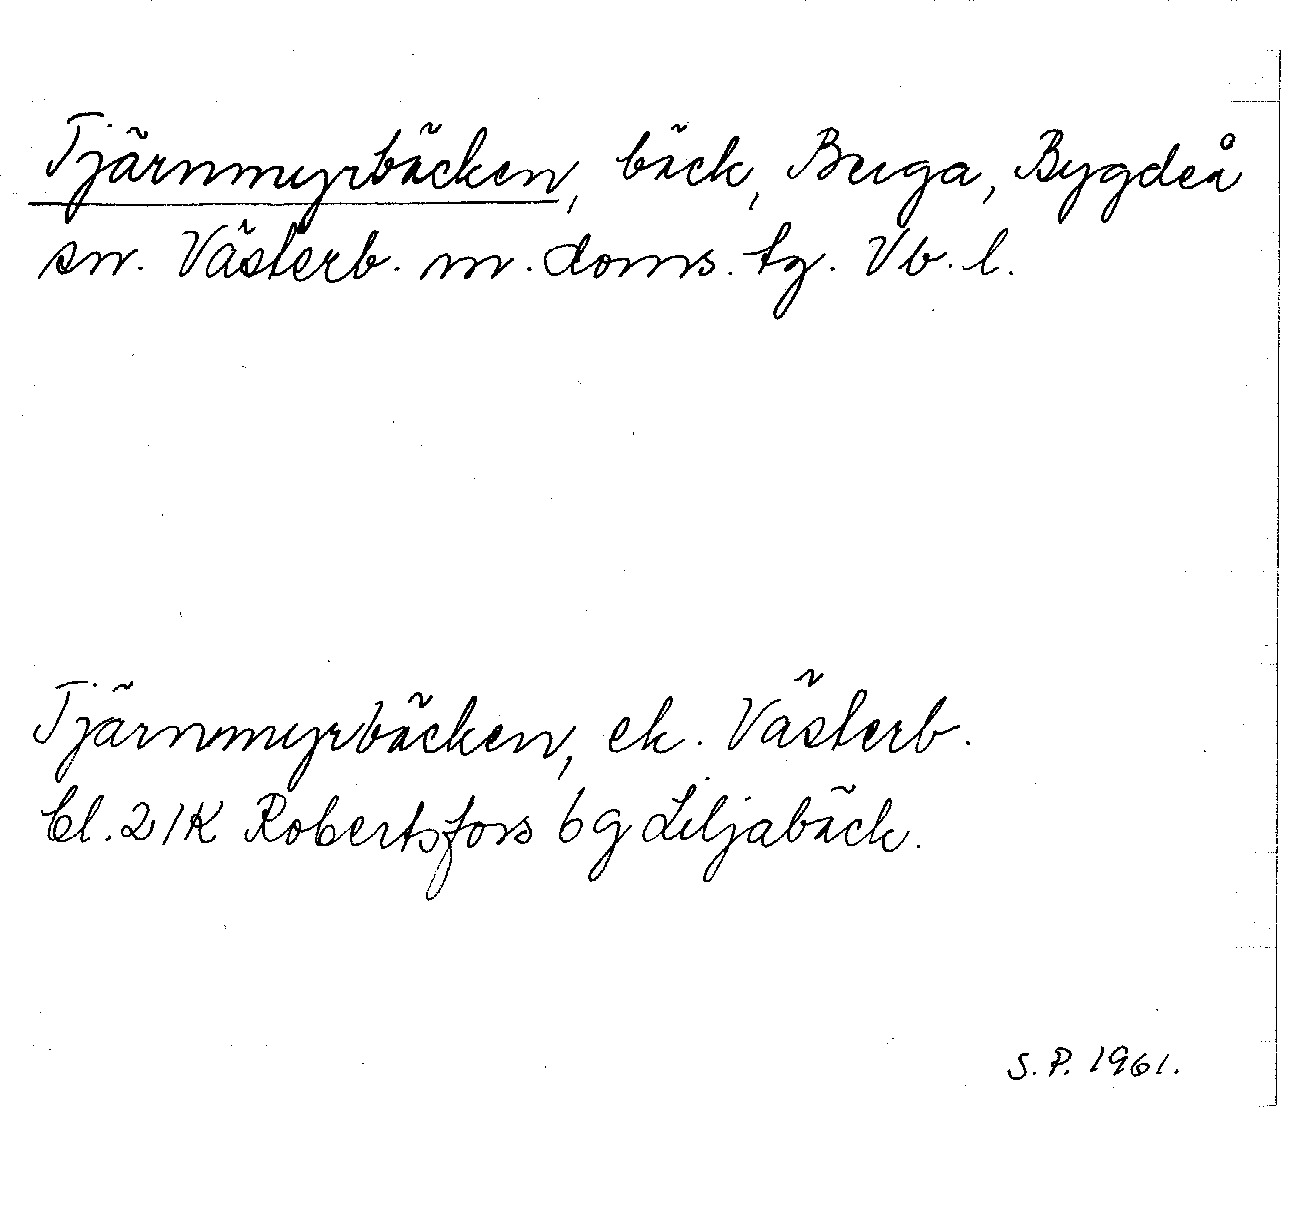 Tjärnmyrbäcken, bäck, Buga, Bygdeå
sn. Västerb. m. doms. tg. Vb. l.
Tjärnmyrbäcken, ek. Västerb.
bl. 21K Robertsfors 6g Liljabäck.
S.P. 1961.